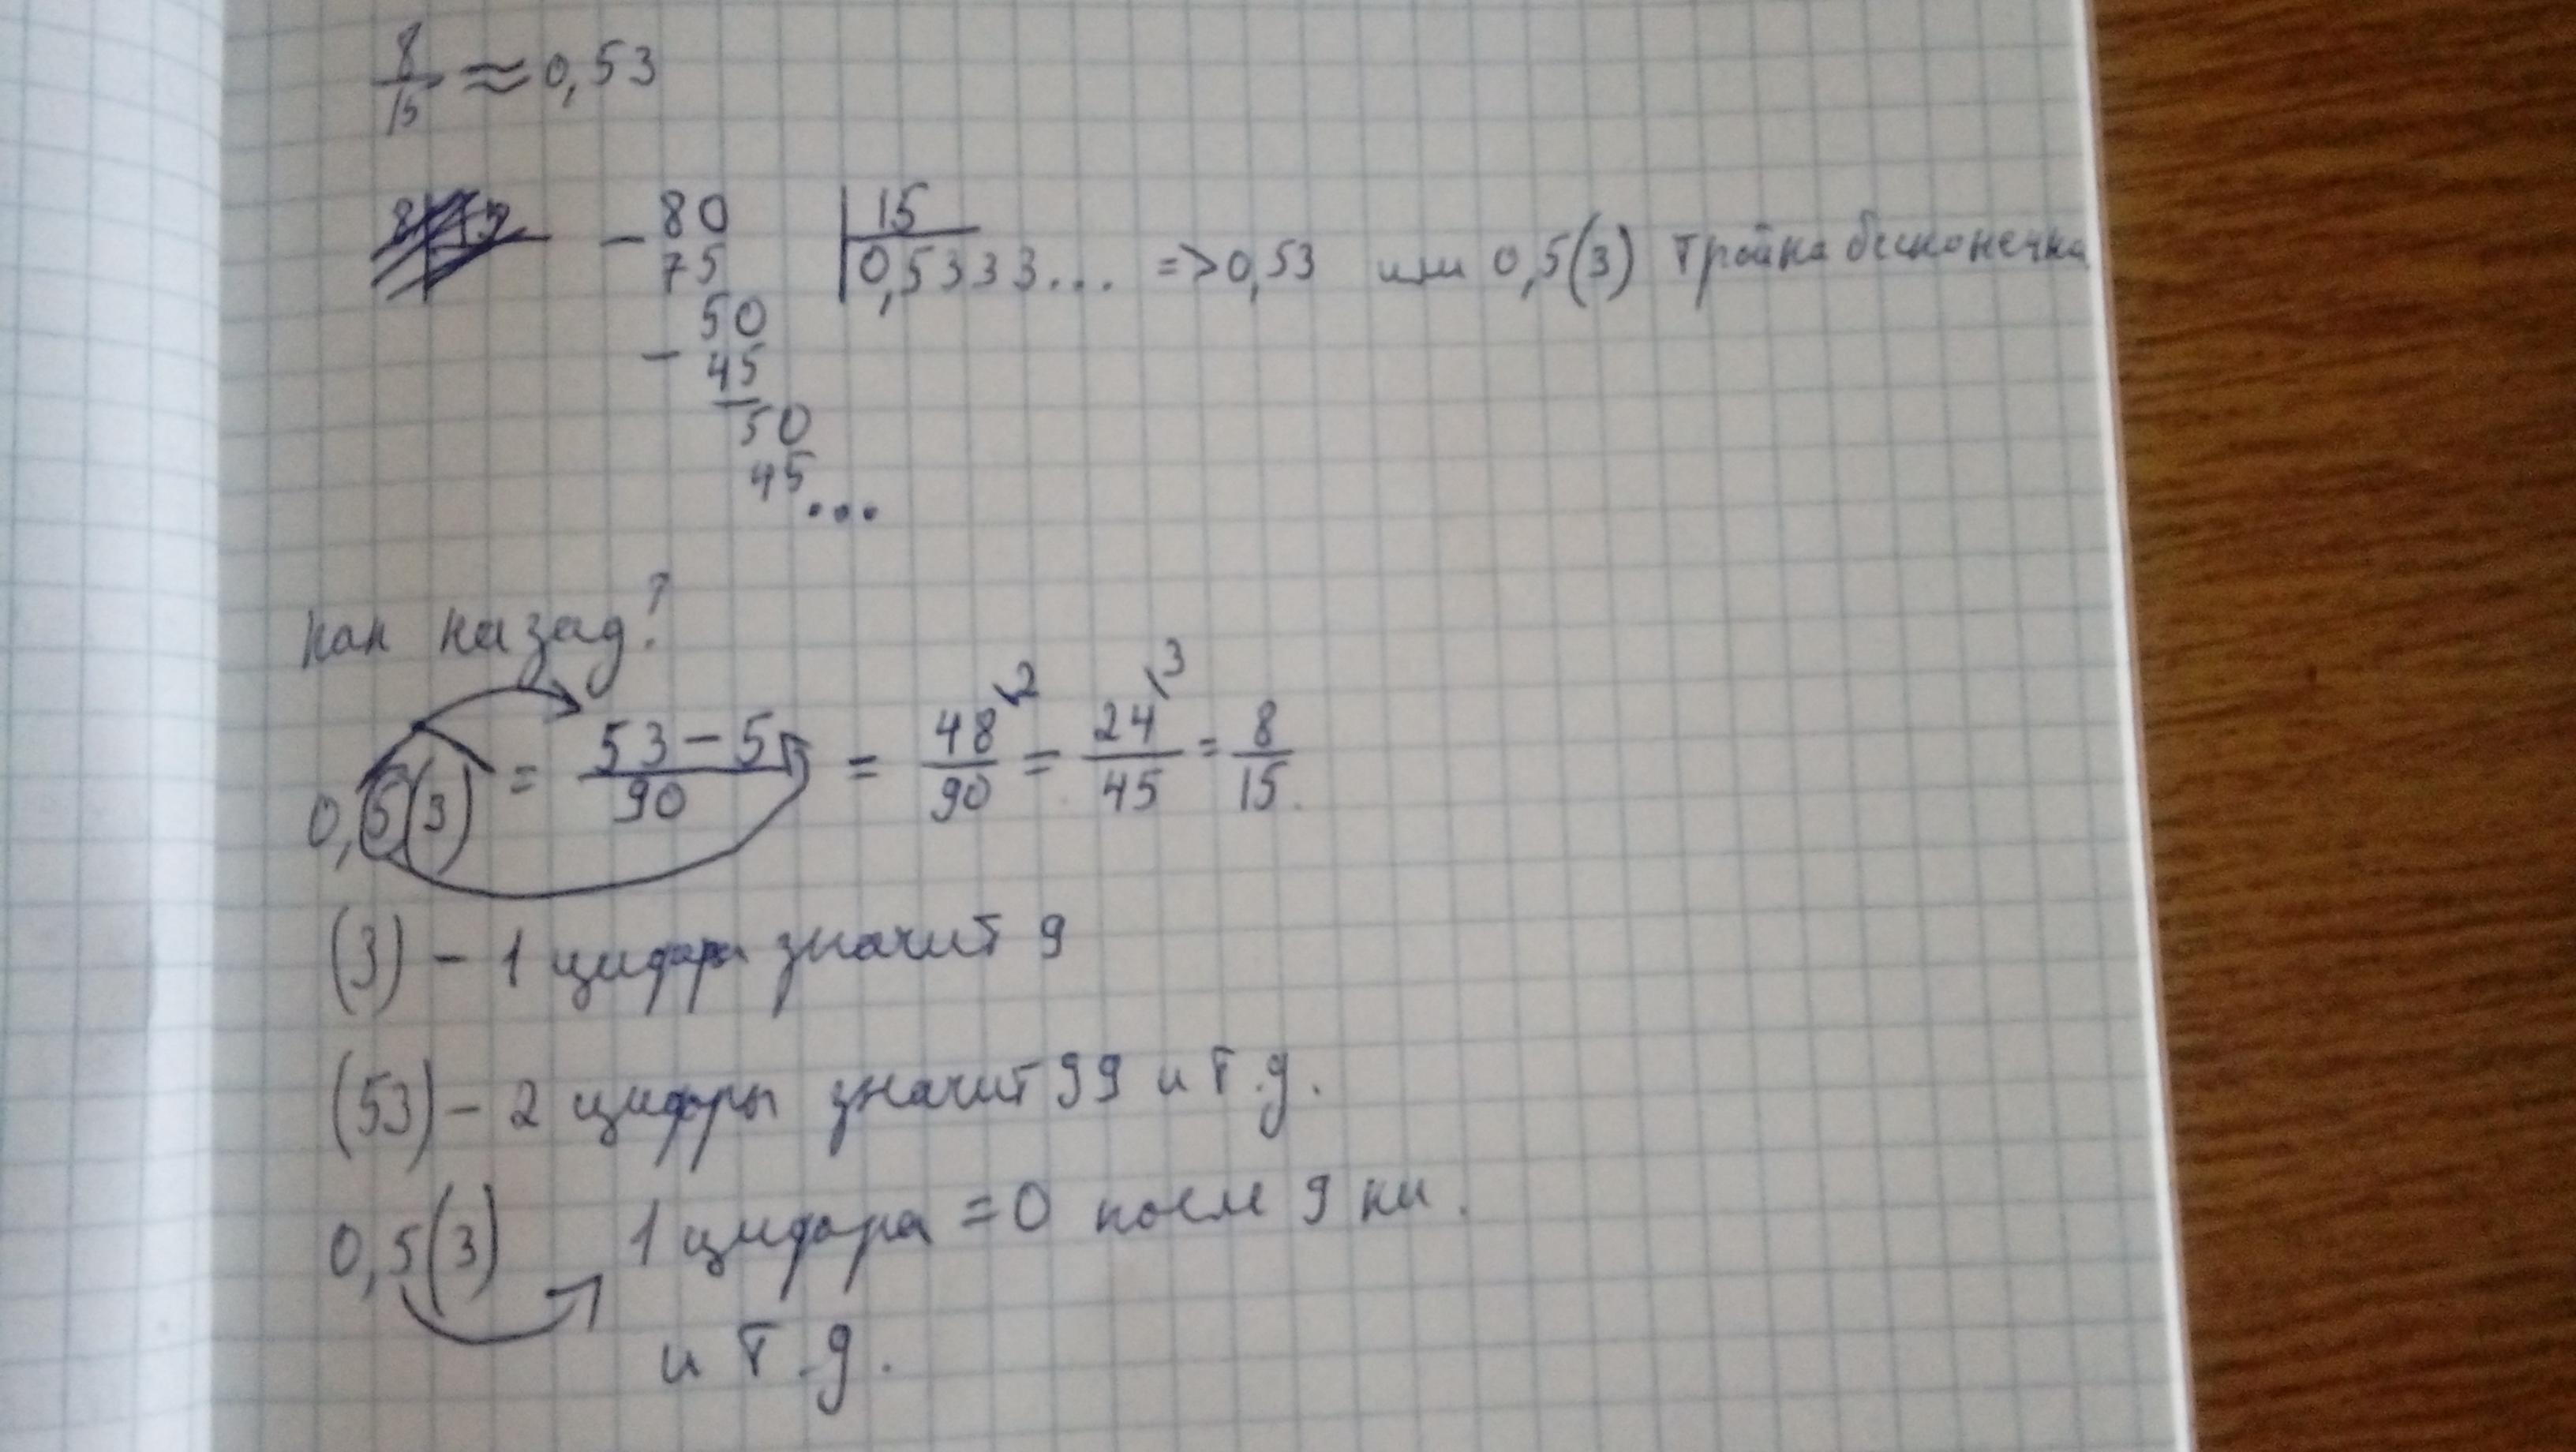 8/15 ≈ 0,53
- 80 | 15
75 | 0,5333... => 0,53 или 0,5(3) тройка бесконечна
50
- 45
50
45
...
как назад?
0,5(3) = 53-5/90 = 48/90 \2 = 24/45 \3 = 8/15
(3) - 1 цифра значит 9
(53) - 2 цифры значит 99 и т.д.
0,5(3) 1 цифра = 0 после 9ки.
и т.д.